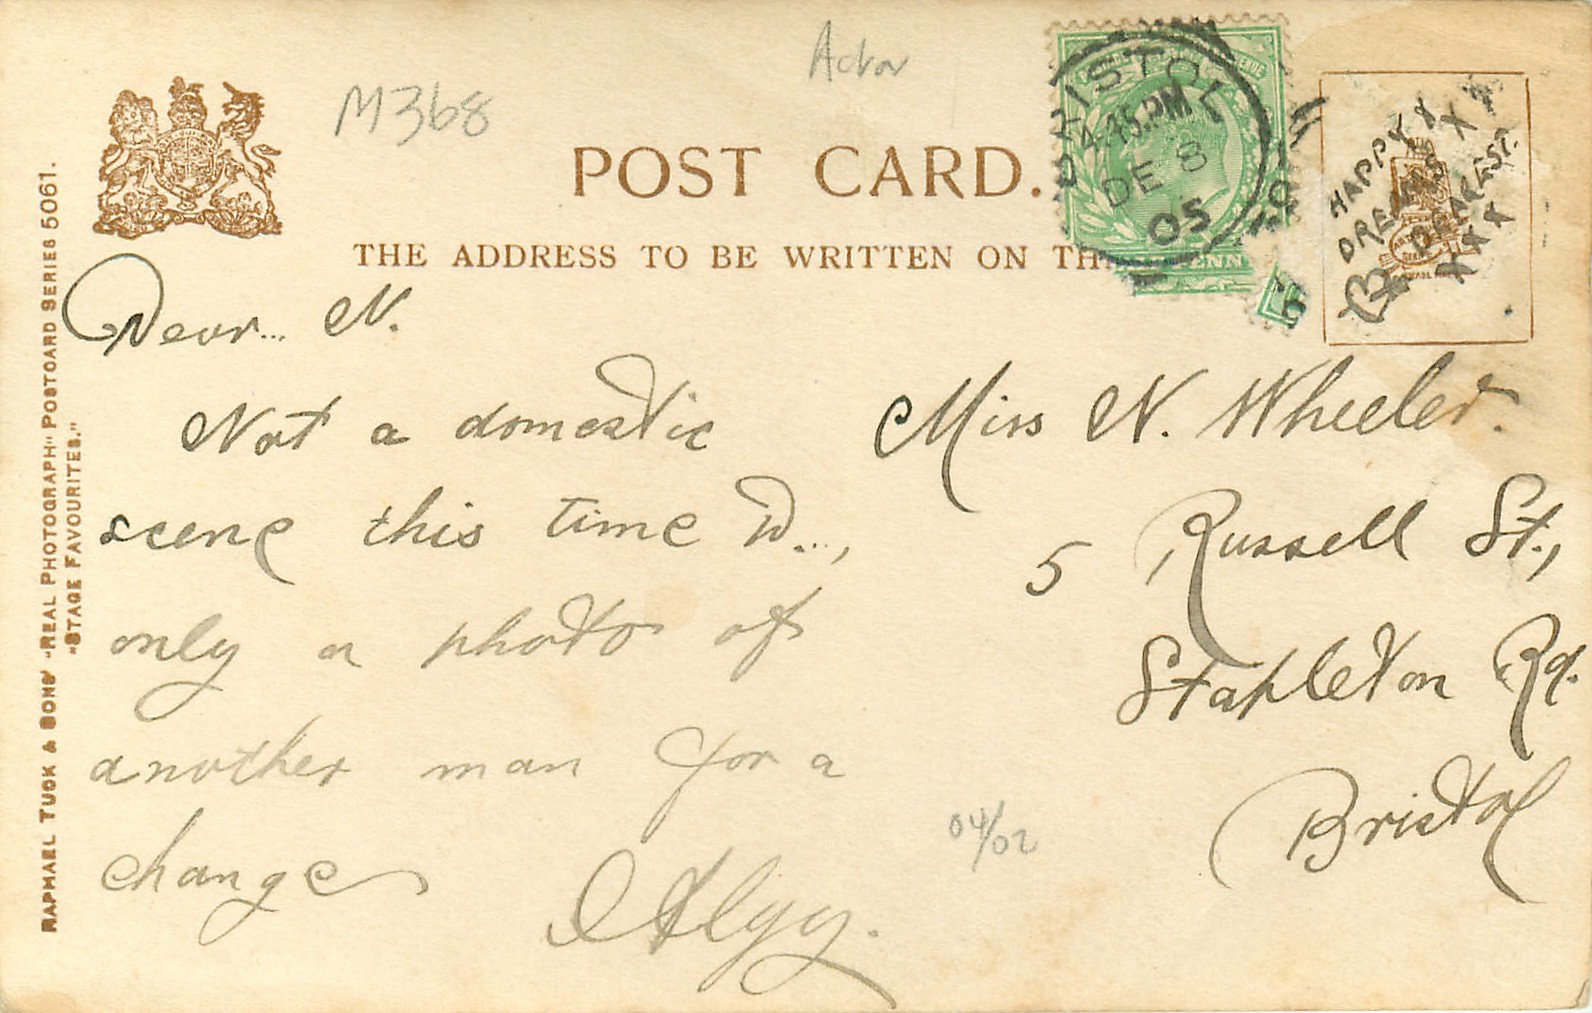 M368
Actor
POST CARD.
THE ADDRESS TO BE WRITTEN ON TH
BRISTOL
4.15.PM
DE 8
05
PENN
HAPPY
DREAMS
DEAREST.
X X X X
X X X
RAPHAEL TUCK & SONS' "REAL PHOTOGRAPH" POSTCARD SERIES 5061.
"STAGE FAVOURITES."
Dear... N.
Not a domestic
scene this time D...,
only a photo of
another man for a
change
Algy.
04/02
Miss N. Wheeler.
5 Russell St.,
Stapleton Rd.
Bristol